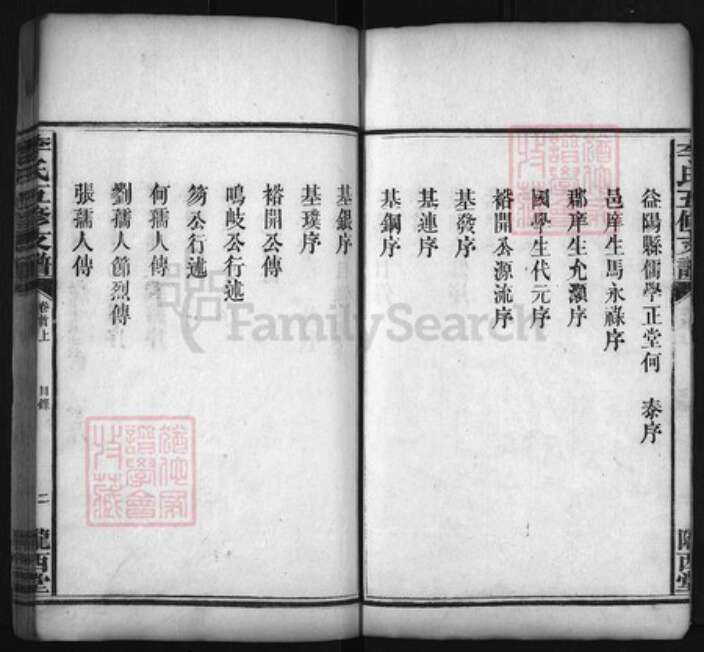 益陽縣儒學正堂何　泰序
邑庠生馬永祿序
郡庠生允灝序
國學生代元序
裕開公源流序
基發序
基連序
基鋼序
李氏五修支譜
隴西堂
基銀序
基璞序
裕開公傳
鳴岐公行述
芴公行述
何孺人傳
劉孺人節烈傳
張孺人傳
李氏五修支譜
卷首上
目錄
二
隴西堂
FamilySearch